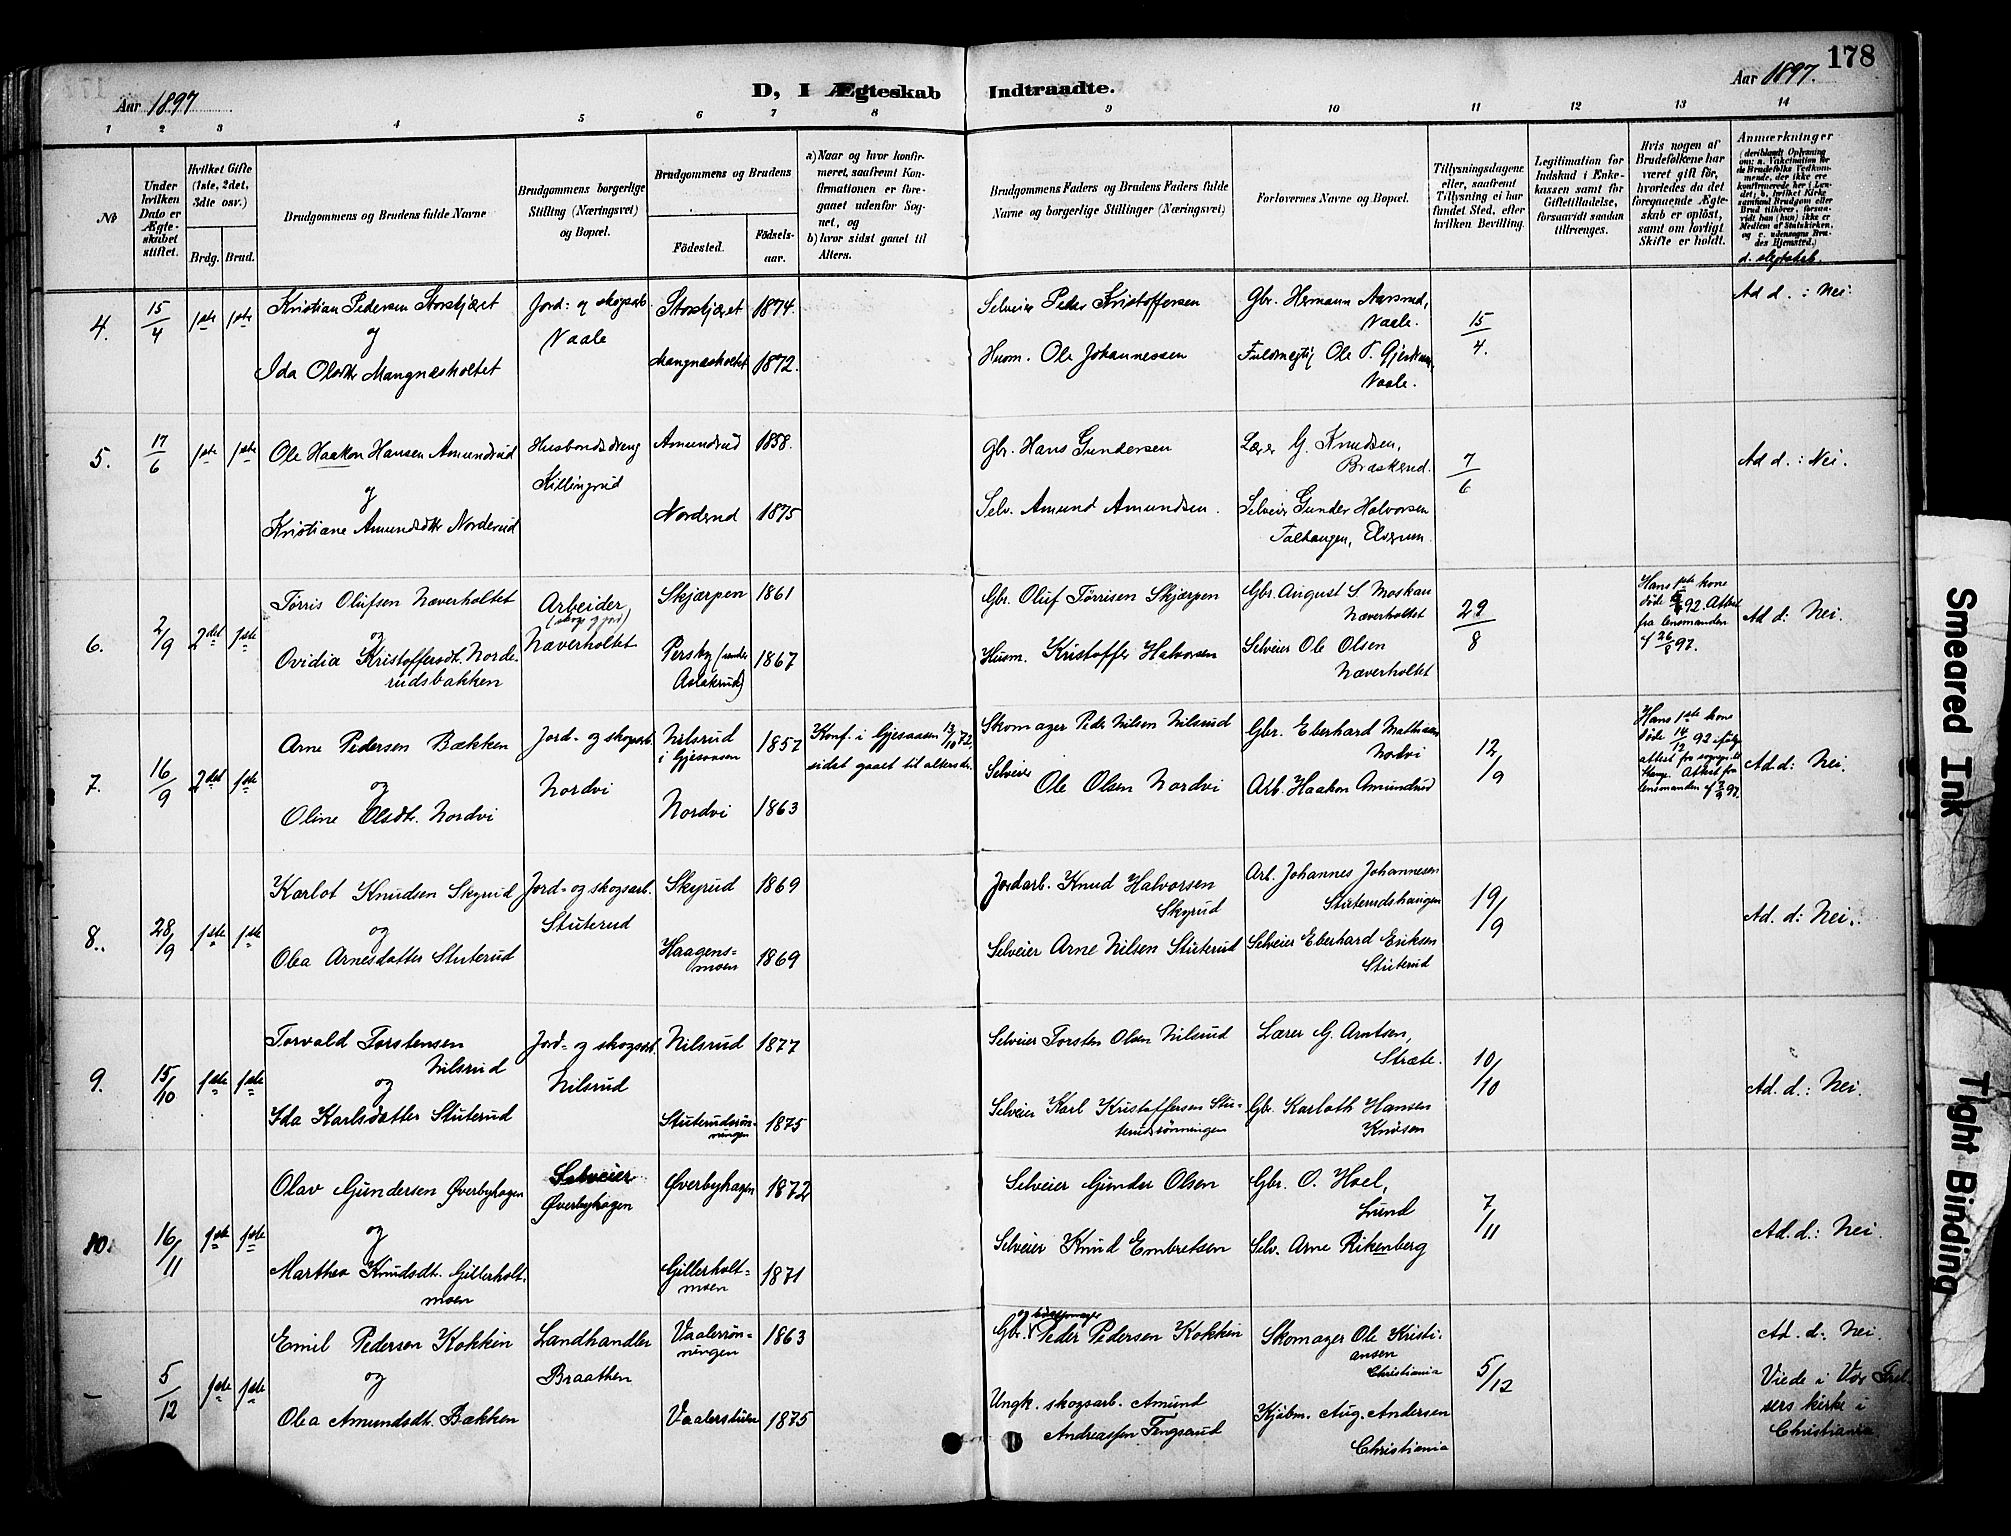 178
Aar 1897
D, I Ægteskab Indtraadte.
Aar 1897.
1 2 3 4 5 6 7 8 9 10 11 12 13 14
No
Under hvilken Dato er Ægteskabet stiftet.
Hvilket Gifte (1ste, 2det, 3die osv.)
Brdg. Brud.
Brudgommens og Brudens fulde Navne
Brudgommens borgerlige Stilling (Næringsvei) og Bopæl.
Brudgommens og Brudens
Fødested.
Fødselsaar.
a) Naar og hvor konfirmeret, saafremt Konfirmationen er foregaaet udenfor Sognet, og
b) hvor sidst gaaet til Alters.
Brudgommens Faders og Brudens Faders fulde Navne og borgerlige Stillinger (Næringsvei)
Forlovernes Navne og Bopæl.
Tillysningsdagene eller, saafremt Tillysning ei har fundet Sted, efter hvilken Bevilling.
Legitimation for Indskud i Enkekassen samt for Giftetilladelse, forsaavidt saadan tiltrænges.
Hvis nogen af Brudefolkene har været gift før, hvorledes da det foregaaende Ægteskab er opløst, samt om lovligt Skifte er holdt.
Anmærkninger
(deriblandt Oplysning om: a. Vakcination for de Brudefolks Vedkommende, der ikke ere konfirmerede her i Landet; b. hvilket Kirkesamfund Brudgom eller Brud tilhører, forsaavidt han (hun) ikke er Medlem af Statskirken, og c. udensogns Brudes Hjemsted.)
d. slegtskab.
4. 15/4 1ste 1ste
Kristian Pedersen Storskjæret
og
Ida Olsdtr Mangnæsholtet
Jord- og skogsarb.
Vaale
Storskjæret 1874.
Mangnæsholtet 1872.
Selveier Peder Kristoffersen
Husm. Ole Johannessen
Gbr. Hermann Aarsrud,
Vaale.
Fuldmegtig Ole T.
Vaale.
15/4.
Ad d.: Nei.
5. 17/6 1ste 1ste
Ole Haakon Hansen Amundrud
og
Kristiane Amundsdtr Norderud
Husbondsdreng
Killingrud
Amundrud 1858.
Norderud 1875
Gbr. Hans Gundersen
Selv. Amund Amundsen.
Lærer G. Knudsen,
Braskerud.
Selveier Gunder Halvorsen
Talhaugen, Elverum.
7/6
Ad d.: Nei.
6. 2/9 2det 1ste
Tørris Olufsen Næverholtet
og
Ovidia Kristoffersdt. Norderudsbakken
Arbeider
(skog og jord)
Næverholtet
Skjærpen 1861
Persky (under
Aslakrud) 1867
Gbr. Oluf Tørrisen Skjærpen
Husm. Kristoffer Halvorsen
Gbr. August S Moskau
Næverholtet
Selveier Ole Olsen
Næverholtet
29/8
Hans 1ste kone
døde 92. Attest
fra lensmanden
af 26/8 97.
Ad d: Nei.
7. 16/9 2det 1ste
Arne Pedersen Bækken
og
Oline Olsdtr. Nordvi
Jord- og skogsarb.
Nordvi
Nilsrud
i Gjesaasen 1857
Nordvi 1863
Konf. i Gjesaasen 13/10 72,
sidst gaaet til alters do.
Skomager Peder Nilsen Nilsrud
Selveier Ole Olsen Nordvi
Gbr. Eberhard Mathisen
Nordvi
Arb. Haakon Amundrud
12/9
Hans 1ste kone
døde 14/12 92 ifølge
attest fra sognepr. til
Stange. Attest fra
lensmanden af 2/9 97.
Ad d: Nei.
8. 28/9 1ste 1ste
Karlot Knudsen Skyrud
og
Olea Arnesdatter Stuterud
Jord- og skogsarb.
Stuterud
Skyrud 1869
Haagensmoen 1869
Jordarb. Knud Halvorsen
Skyrud
Selveier Arne Nilsen Stuterud
Arb. Johannes Johannesen
Stuterudshaugen
Selveier Eberhard Eriksen
Stuterud
19/9
Ad. d: Nei.
9. 15/10 1ste 1ste
Torvald Torstensen
Nilsrud
og
Ida Karlsdatter Stuterud
Jord- og skogsarb.
Nilsrud
Nilsrud 1877
Stuterudsrønningen 1875
Selveier Torsten Olsen Nilsrud
Selveier Karl Kristoffersen Stuterudsrønningen
Lærer G. Arntsen,
Stræte.
Gbr. Karloth Hansen
Knæsen
10/10
Ad. d.: Nei.
10. 16/11 1ste 1ste
Olav Gundersen Øverbyhagen
og
Marthea Knudsdt. Gillerholtmoen
Selveier
Øverbyhagen
Øverbyhagen 1872
Gillerholtmoen 1871
Selveier Gunder Olsen
Selveier Knud Embretsen
Gbr. O. Hoel,
Lund
Selv. Arne Rikenberg
7/11
Ad. d.: Nei.
– 5/12 1ste 1ste
Emil Pedersen Kokkin
og
Olea Amundsdt. Bækken
Landhandler
Braathen
Vaalerrønningen 1863
1875
Gbr. og Peder Pedersen Kokkin
Ungk. skogsarb. Amund
Andreassen Tengsrud
Skomager Ole Kristiansen
Christiania
Kjøbm. Aug. Andersen
Christiania
5/12
Ad. d: Nei.
Viede i Vor Frelsers kirke i
Christiania
Smeared Ink
Tight Binding